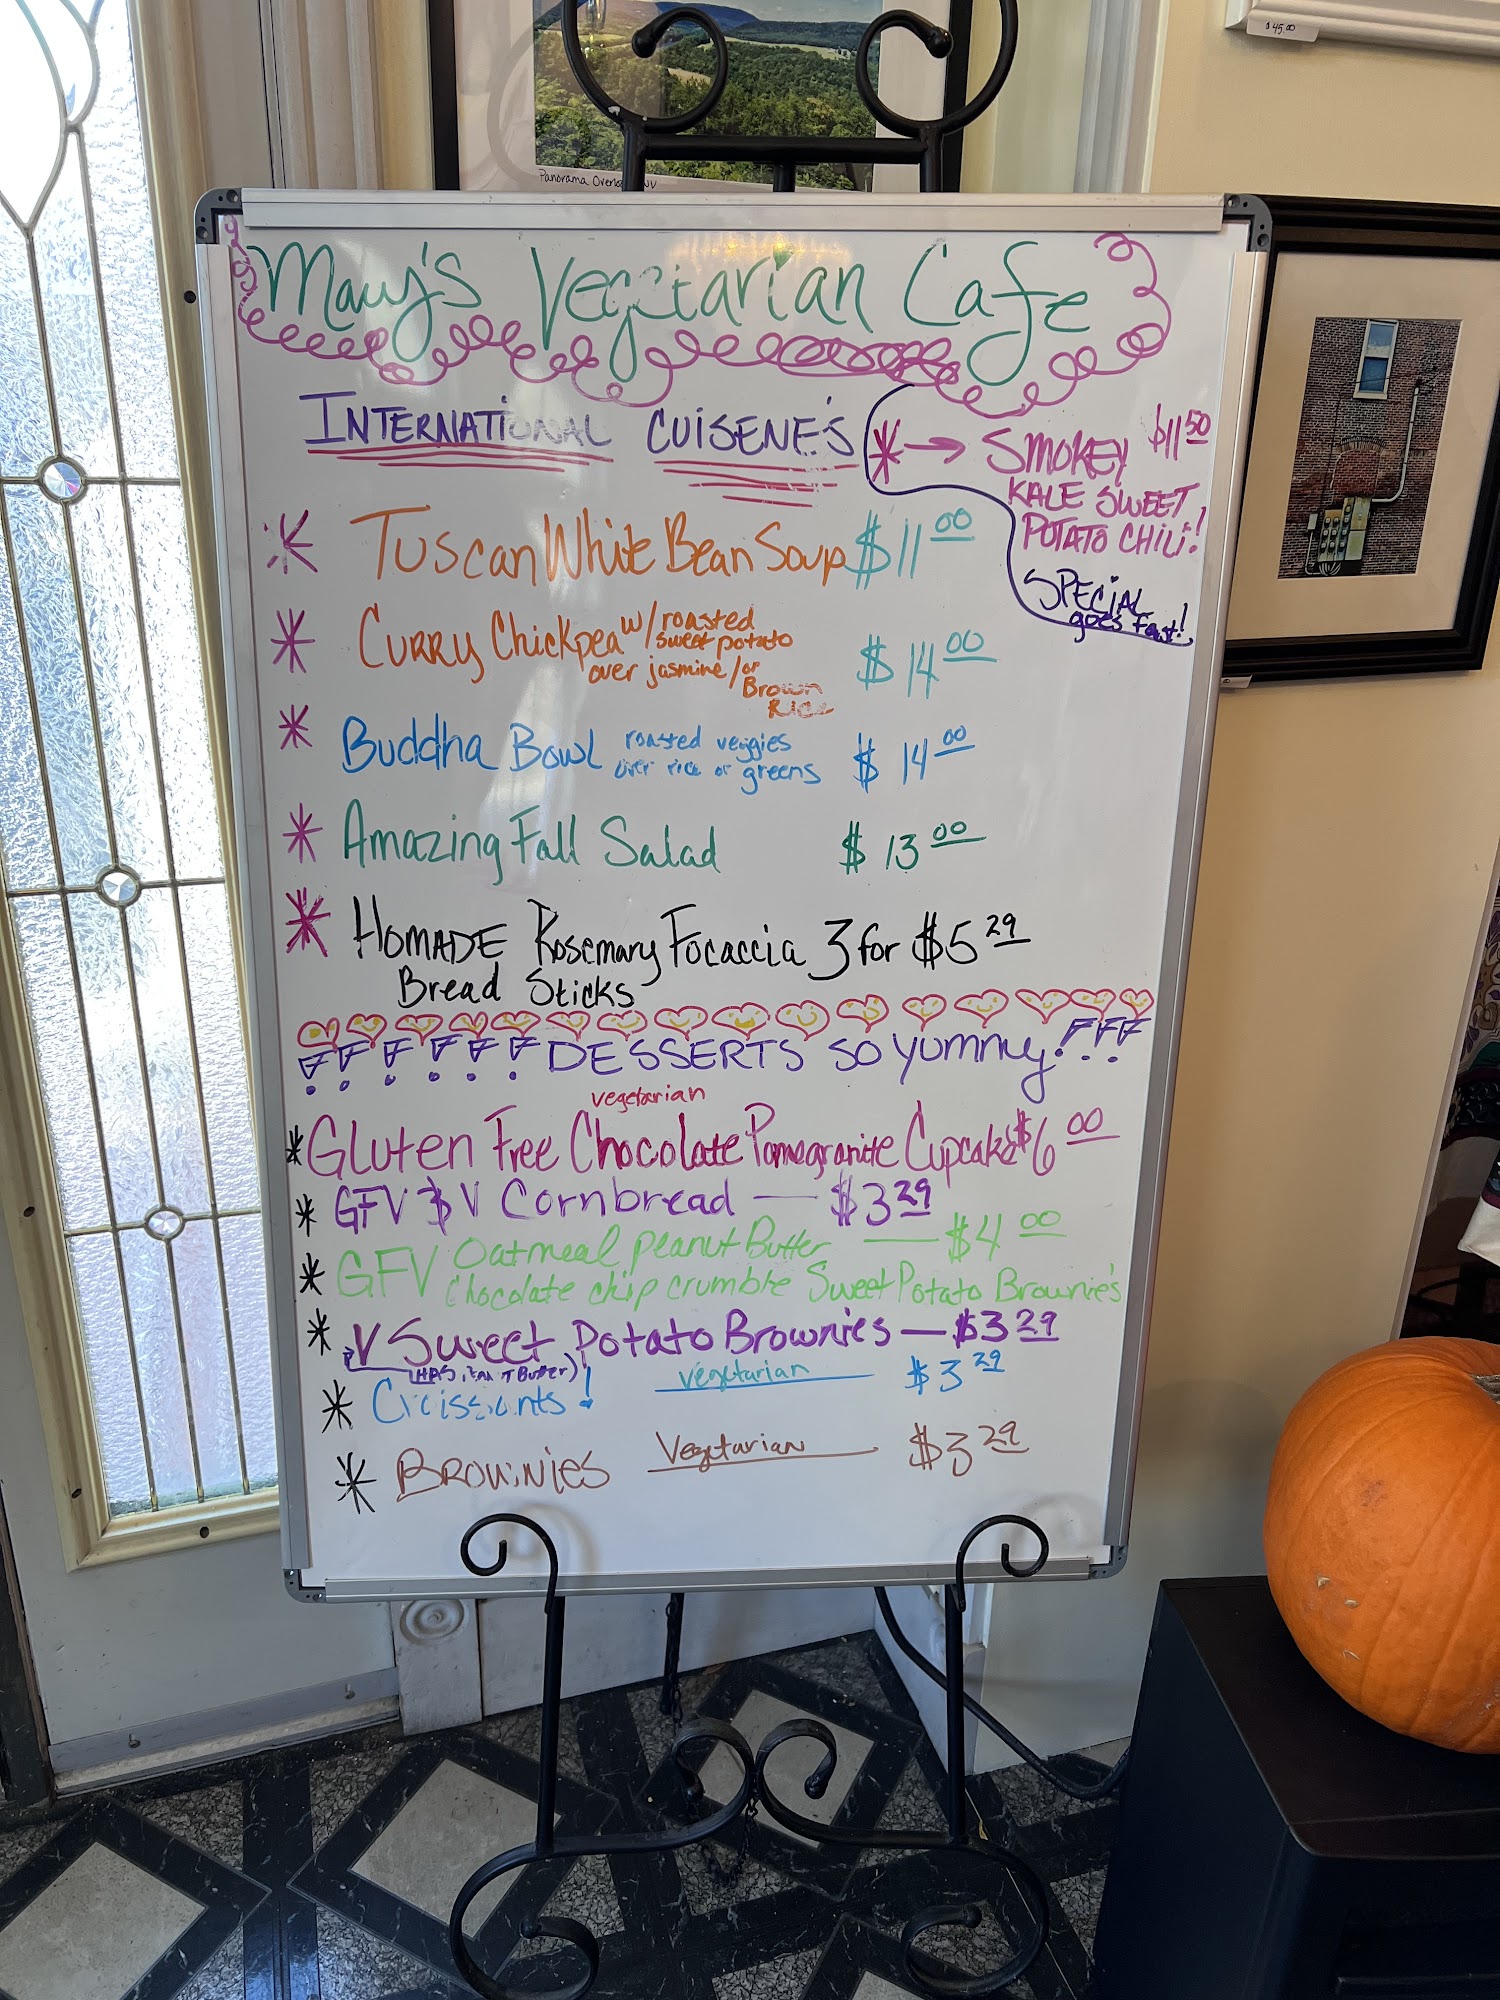 $45.00
Panorama
Mary's Vegetarian Cafe
INTERNATIONAL CUISENE'S
* → SMOKEY $11 50
KALE SWEET
POTATO CHILI!
SPECIAL
goes Fast!
* Tuscan White Bean Soup $11 00
* CURRY Chickpea w/roasted
sweet potato
over jasmine/or
Brown
Rice
$14 00
* Buddha Bowl roasted veggies
over rice or greens
$14 00
* Amazing Fall Salad $13 00
* HOMADE Rosemary Focaccia 3 for $5 29
Bread Sticks
DESSERTS SO yummy!
vegetarian
* Gluten Free Chocolate Pomegranite Cupcake $6 00
* GFV & V Cornbread — $3 29
* GFV Oatmeal peanut Butter — $4 00
Chocolate chip crumble Sweet Potato Brownie's
* V Sweet Potato Brownies — $3 29
Butter)
* Croissants! vegetarian $3 29
* BROWNIES Vegetarian $3 29